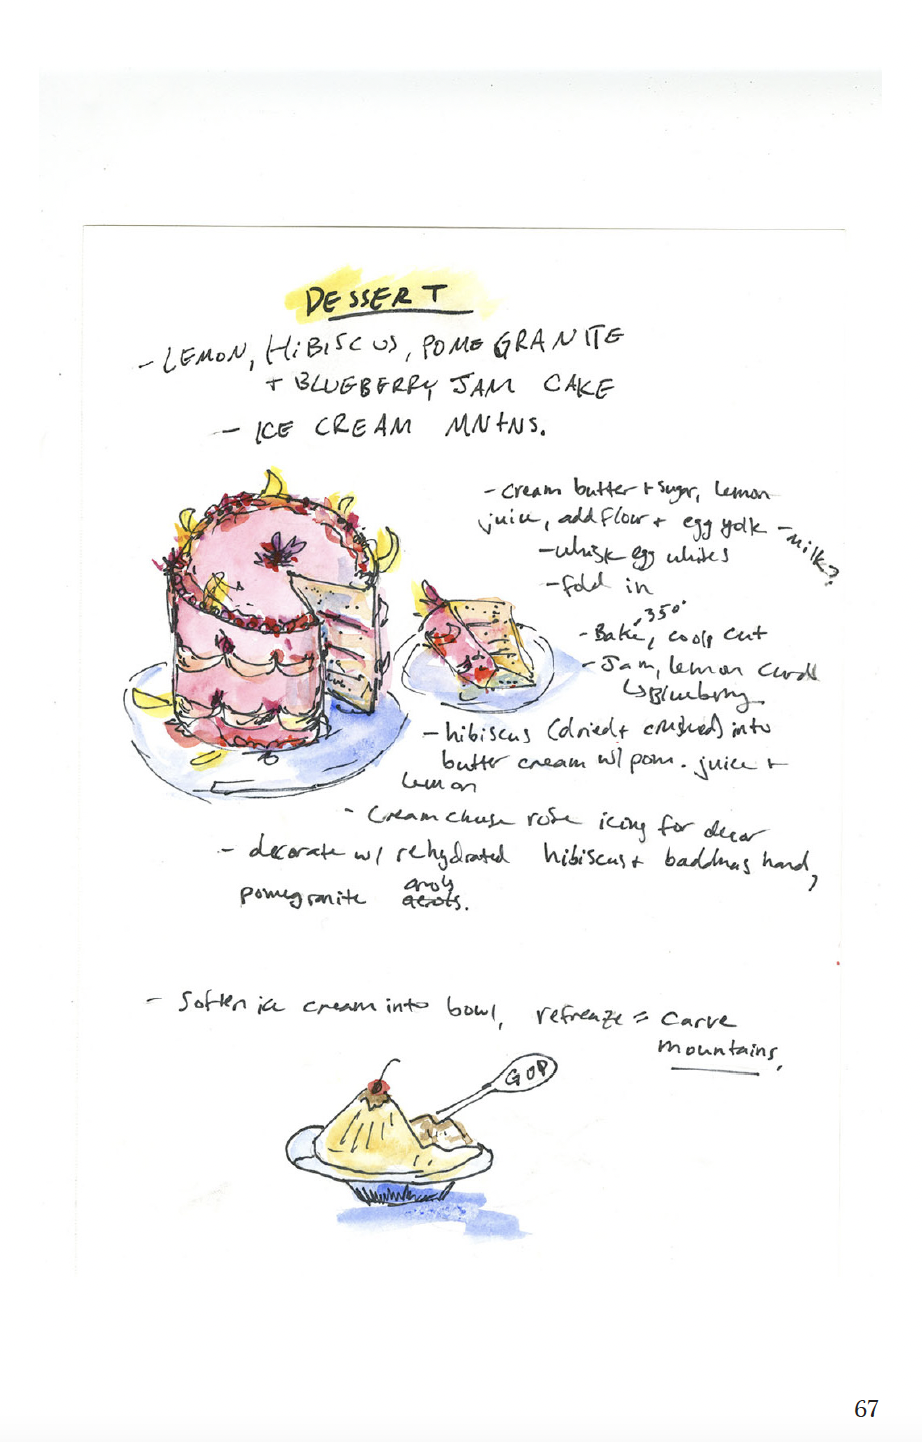 DESSERT
- LEMON, HIBISCUS, POMEGRANITE
+ BLUEBERRY JAM CAKE
- ICE CREAM MNTNS.
- cream butter + sugar, lemon
juice, add flour + egg yolk - milk?
- whisk egg whites
- fold in
- Bake, 350° cool, cut
- Jam, lemon curd
↳ Blueberry
- hibiscus (dried + crushed) into
butter cream w/ pom. juice +
lemon
- Cream cheese rose icing for decor
- decorate w/ rehydrated hibiscus + buddhas hand,
pomegranite arols.
- Soften ice cream into bowl, refreeze = carve
mountains.
GOP
67